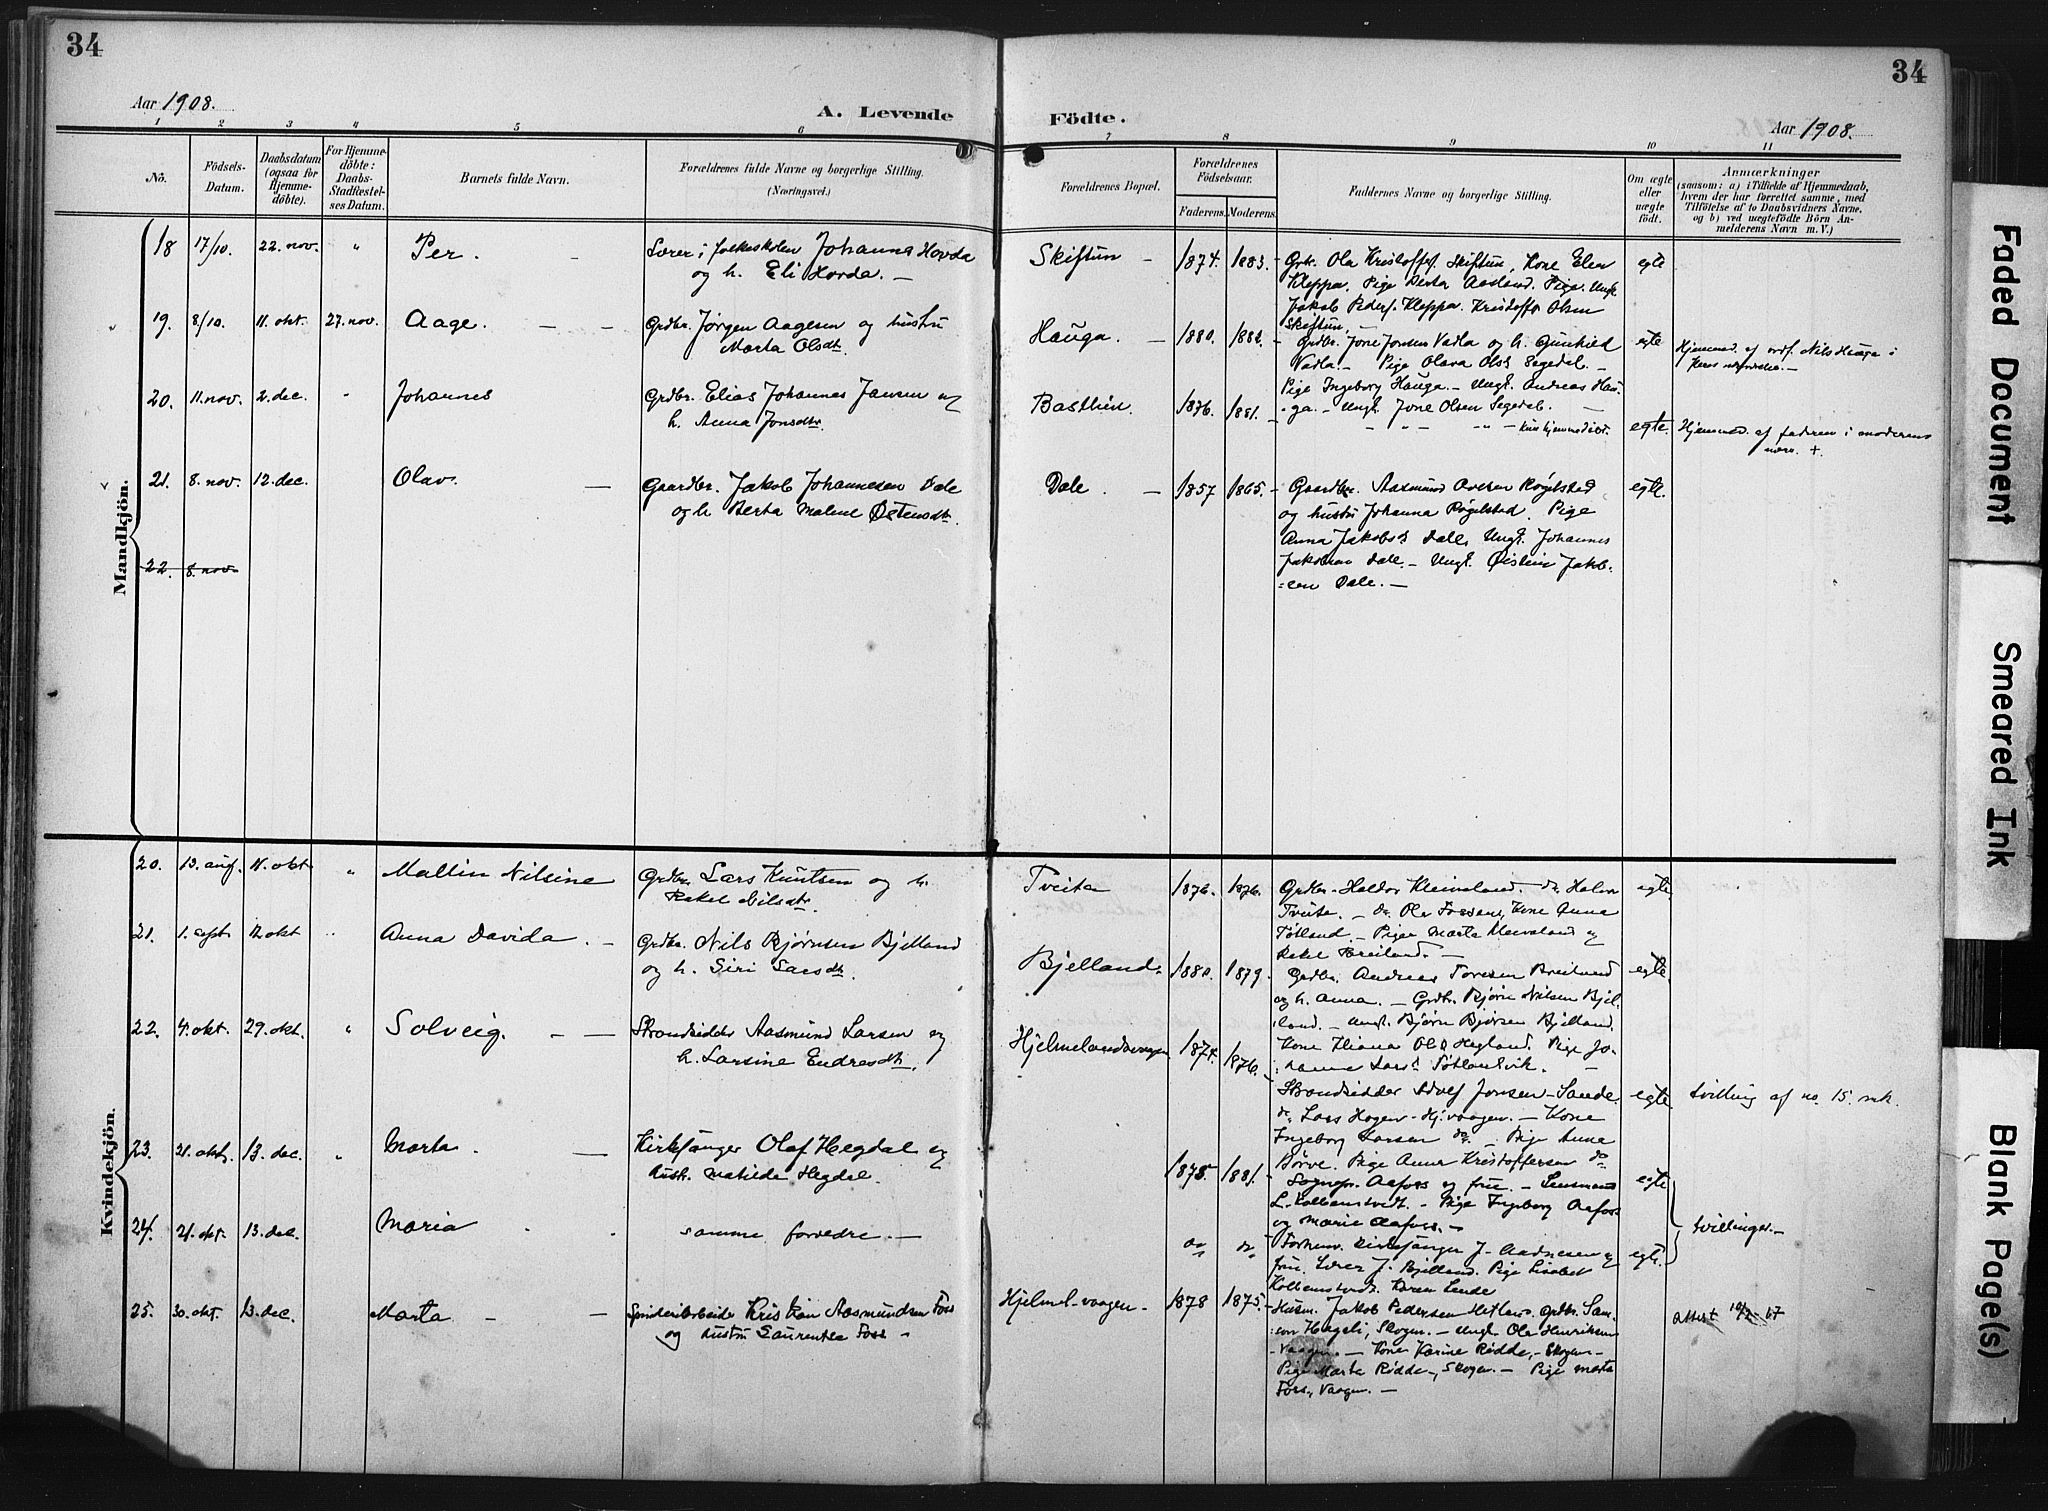 34
34
Aar 1908.
A. Levende
Födte.
Aar 1908.
1 2 3 4 5 6 7 8 9 10 11
No.
Födsels-
Datum.
Daabsdatum
(ogsaa for
Hjemme-
döbte).
For Hjemme-
döbte:
Daabs-
Stadfæstel-
ses Datum.
Barnets fulde Navn.
Forældrenes fulde Navne og borgerlige Stilling.
(Næringsvei.)
Forældrenes Bopæl.
Forældrenes
Födselsaar.
Faderens. Moderens.
Faddernes Navne og borgerlige Stilling.
Om ægte
eller
uægte
födt.
Anmærkninger
(saasom: a) i Tilfælde af Hjemmedaab,
hvem der har forrettet samme, med
Tilföielse af to Daabsvidners Navne.
og b) ved uægtefödte Börn An-
melderens Navn m. V.)
Mandkjön.
18 17/10. 22. nov. " Per. –
Lærer i folkeskolen Johannes Hovda
og h. Eli Hovda. –
Skiftun – 1874. 1883.
Grbr. Ola Kristoffs. Skiftun, Kone Elen
Kleppa. Pige Berta Aasland. Pige. Ungk.
Jakob Peders. Kleppa. Kristoffer Olsen
Skiftun. –
egte
19. 8/10. 11. okt. 27. nov. Aage. – –
Grdbr. Jørgen Aagesen og hustru
Marta Olsdtr.
Hauga. – 1880. 1882.
Grdbr. Jone Jonsen Vadla og h. Gunhild
Vadla. – Pige Olava Olsd. Segedal. –
Pige Ingeborg Hauga. – Ungk. Andreas Hau-
ga. – Ungk. Jone Olsen Segedal.
egte
Hjemmed. af ordf. Nils Hauga i
20. 11. nov. 2. dec. " Johannes
Grdbr. Elias Johannes Jansen og
h. Anna Jonsdtr.
1876. 1881.
– " – " – kun hjemmedöbt.
egte.
Hjemmed. af faderen i moderens
nærv. +.
21. 8. nov. 12. dec. Olav. –
Gaardbr. Jakob Johannesen Dale
og h Berta Malene Østensdtr.
Dale. – 1857 1865.
Gaardbr. Aasmund Røgelstad
og hustru Johanna Røgelstad. Pige
Anna Jakobsd. Dale, Ungk. Johannes
Jakobsen Dale. – Ungk. Øistein Jakob-
sen Dale. –
egte.
22. 8. nov.
Kvindekjön.
20. 13. aug. 11. okt " Mallin Nilsine
Grdbr. Lars Knutsen og h.
Rakel Nilsdtr.
Tveita 1876. 1876.
Grdbr. Haldor Kleivaland. do. Halvor
Tveita. – do. Ole Fossene, Kone Anna
Tøtland. – Piger Marta Kleivaland og
Rakel Breiland. –
egte
21. 1. sept. 12. okt " Anna Davida. –
Grdbr. Nils Bjørnsen Bjelland
og h. Siri Larsdtr.
Bjelland. 1880. 1879.
Grdbr. Andreas Toresen Breiland
og h. Anna. – Grdbr. Bjørn Nilsen Bjel-
land. – Ungk. Bjørn Bjørnsen Bjelland.
Kone Eliana Olsd Hegland. Pige Jo-
hanne Larsd. Tøtlandsvik. –
egte
22. 4. okt. 29. okt. " Solveig. – –
Strandsidder Aasmund Larsen og
h. Larsine Endresdtr.
Hjelmelandsvaagen 1874. 1876.
Strandsidder Adolf Jonsen – Sande.
do. Lars Hagen – Hj.vaagen. – Kone
Ingeborg Larsen do. – Pige Anne
Børve. Pige Anna Kristoffersen do.
egte.
tvilling af no. 15. mk.
23. 21. okt. 13. dec. " Marta. –
Kirkesanger Olaf Hegdal og
hust. Matilde Hegdal.
1875. 1881.
Sognepr. Aafoss og frue. – Lensmand
L. Kolbenstvedt. – Pige Ingeborg Aafoss
og Marie Aafoss. –
egte
24. 21. okt. 13. dec. Maria
samme forældre. –
do do
Forhenv. Kirkesanger J. Aadnesen og
frue. Lærer J. Bjelland. Pige Lisabet
Kolbenstvedt. Karen Lende
egte.
tvillinger. –
25. 30. okt. 13. dec. Marta – –
Spinderiarbeider Kristian Aasmundsen Foss
og hustru Laurentse Foss –
Hjelmel-vaagen – 1878 1875.
Husm. Jakob Pedersen Hetland. Grdbr. Sam-
son Hageli, Skogen. – Ungk. Ole Henriksen
Vaagen. – Kone Karine Rødde, – Skogen –
Pige Marta Rødde –, Skogen. – Pige Marta
Foss, Vaagen. –
Faded Document
Smeared Ink
Blank Page(s)